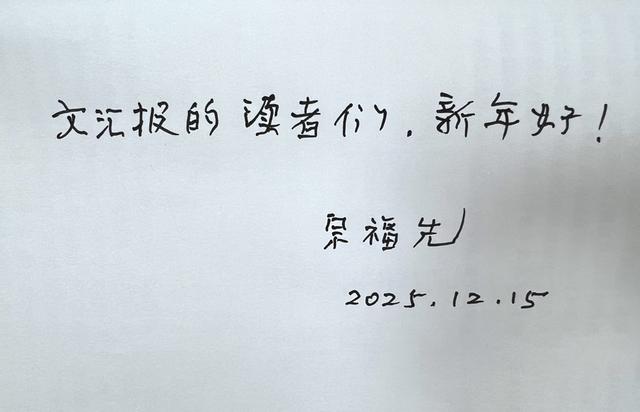 文汇报的读者们，新年好！
宗福先
2025.12.15